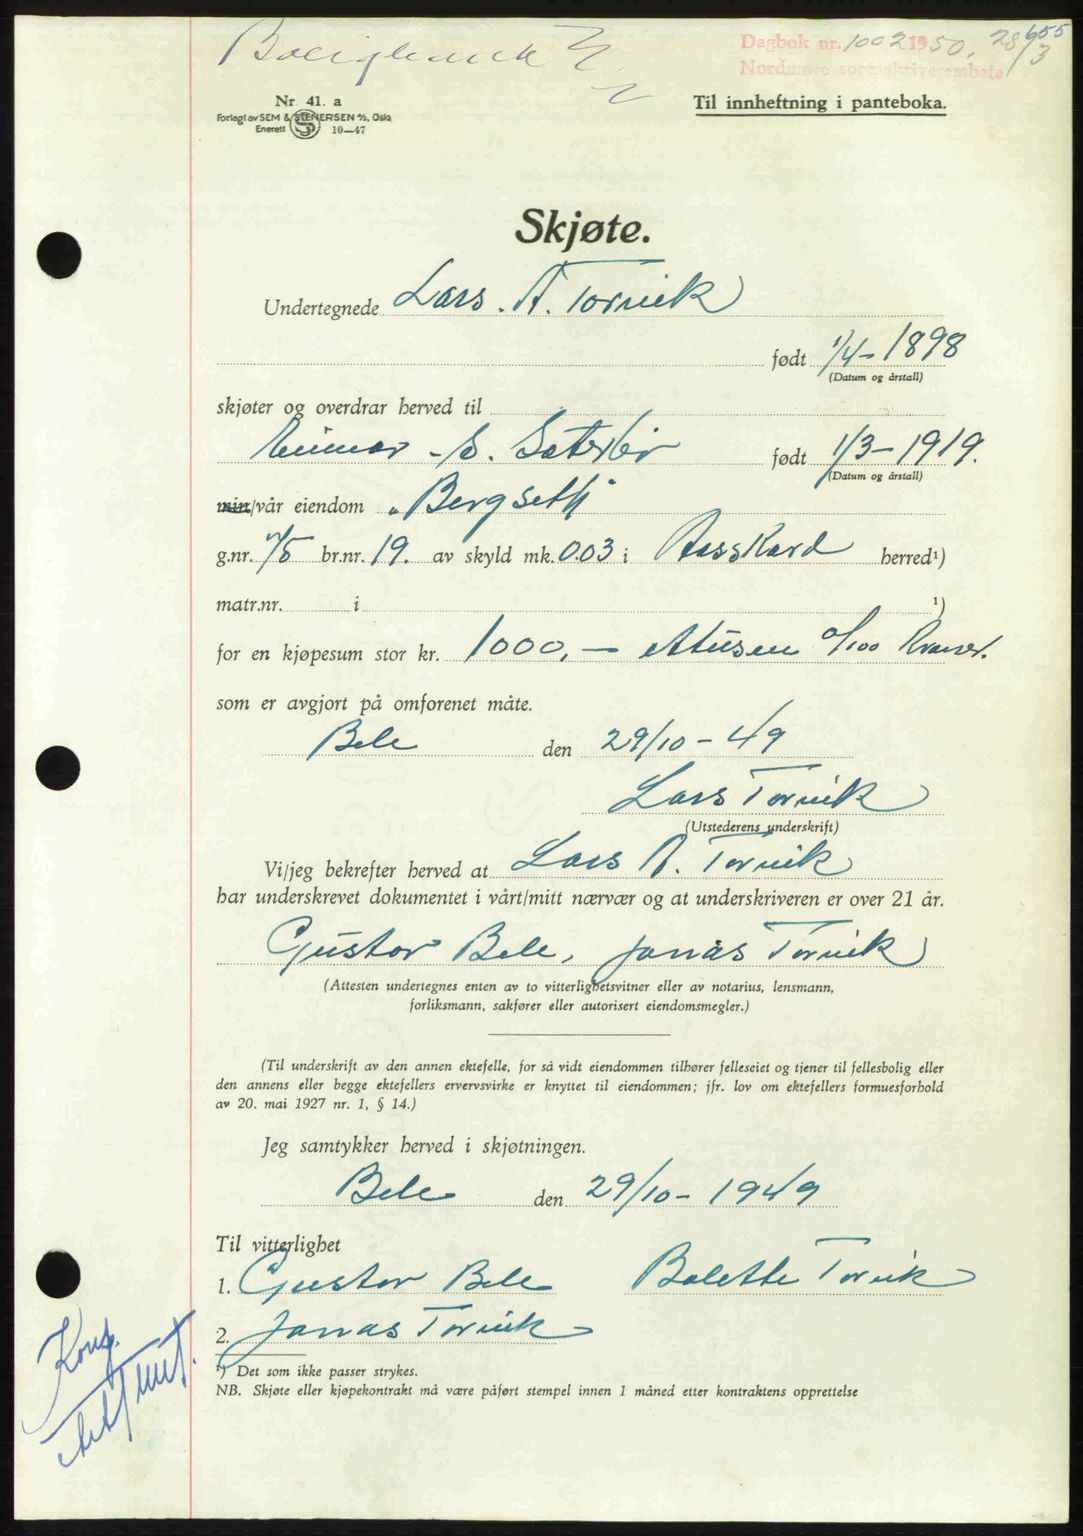 Dagbok nr. 1002 1950. 28/3 655
Nordmøre sorenskriverembete
Nr. 41. a
Forlagt av SEM & STENERSEN A/S, Oslo
Enerett S 10—47
Til innheftning i panteboka.
Skjøte.
Undertegnede Lars. A. Torvik
født 1/4 - 1898
(Datum og årstall)
skjøter og overdrar herved til
Einar S. Sæterbø født 1/3 - 1919.
(Datum og årstall)
min/vår eiendom „Bergseth"
g.nr. 75 br.nr. 19. av skyld mk. 0.03 i Aasskard herred¹)
matr.nr. i ¹)
for en kjøpesum stor kr. 1000,— Etusen 0/100 Kroner.
som er avgjort på omforenet måte.
Bele den 29/10 - 49
Lars Torvik
(Utstederens underskrift)
Vi/jeg bekrefter herved at Lars A. Torvik
har underskrevet dokumentet i vårt/mitt nærvær og at underskriveren er over 21 år.
Gustav Bele, Jonas Torvik
(Attesten undertegnes enten av to vitterlighetsvitner eller av notarius, lensmann,
forliksmann, sakfører eller autorisert eiendomsmegler.)
(Til underskrift av den annen ektefelle, for så vidt eiendommen tilhører felleseiet og tjener til fellesbolig eller
den annens eller begge ektefellers ervervsvirke er knyttet til eiendommen; jfr. lov om ektefellers formuesforhold
av 20. mai 1927 nr. 1, § 14.)
Jeg samtykker herved i skjøtningen.
Bele den 29/10 - 1949
Til vitterlighet
1. Gustav Bele Bolette Torvik
2. Jonas Torvik
¹) Det som ikke passer strykes.
NB. Skjøte eller kjøpekontrakt må være påført stempel innen 1 måned etter kontraktens opprettelse